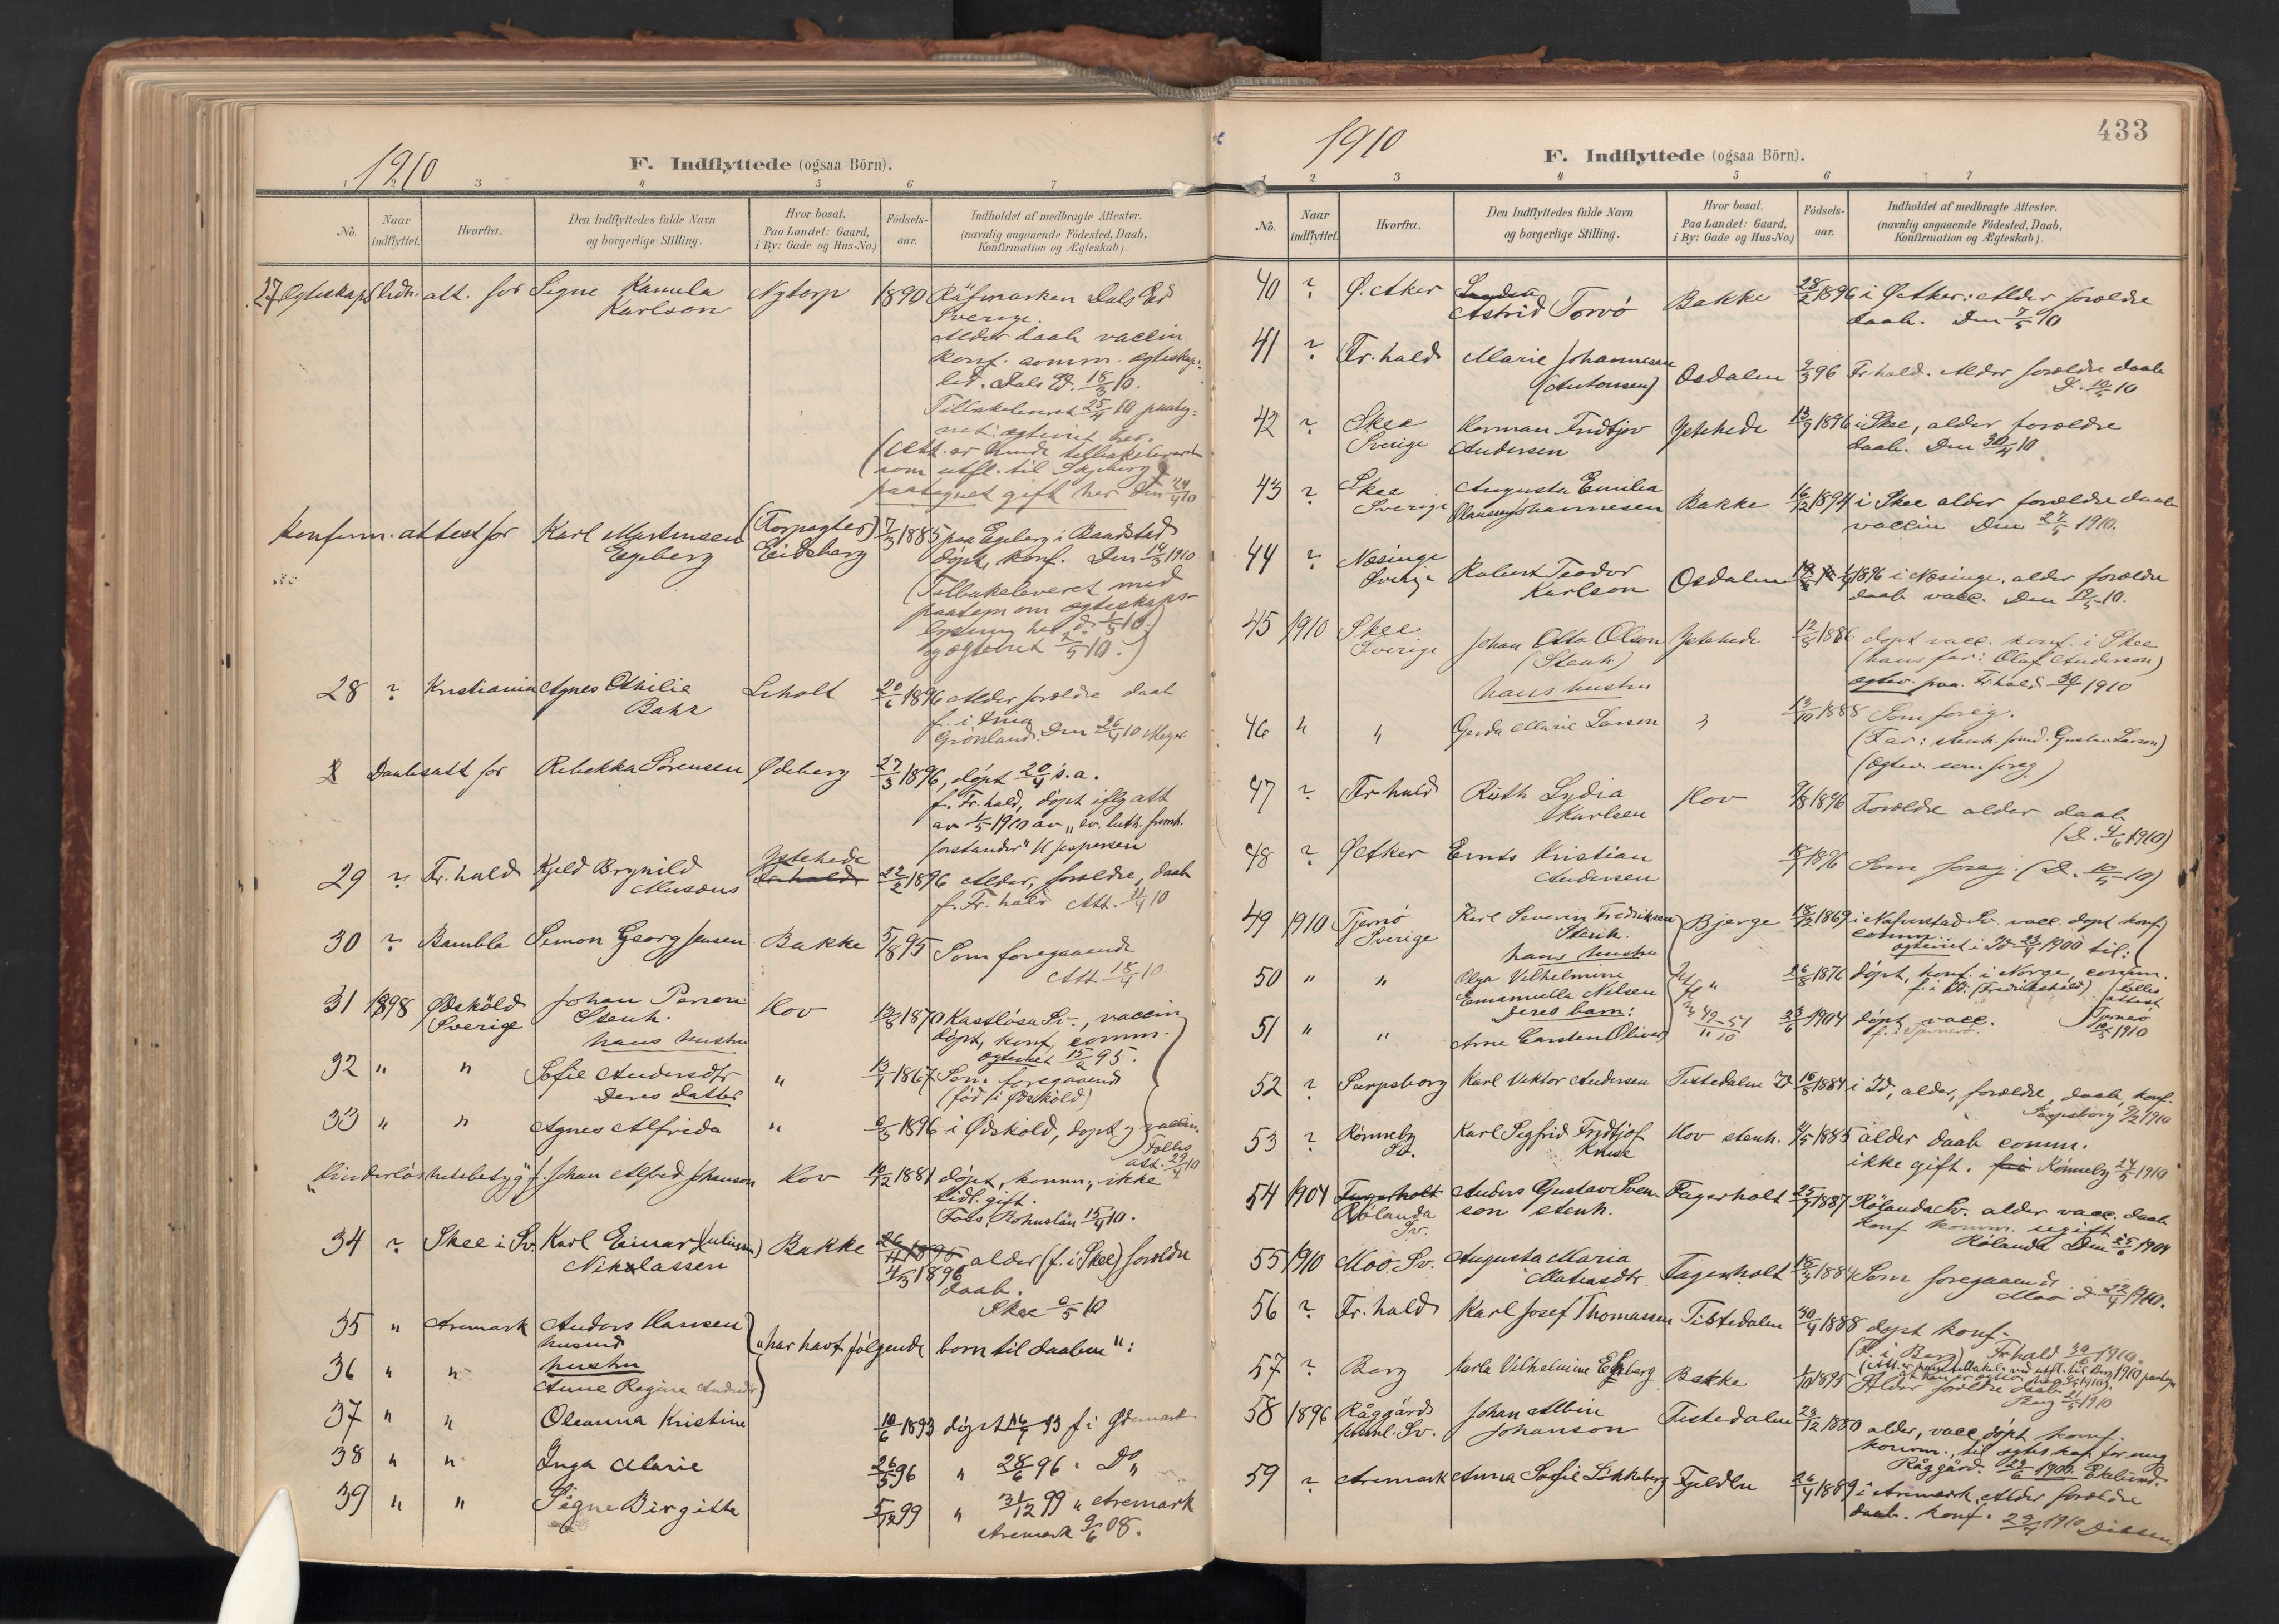 1910
F. Indflyttede (ogsaa Börn).
1 2 3 4 5 6 7
No.
Naar indflyttet.
Hvorfra.
Den Indflyttedes fulde Navn og borgerlige Stilling.
Hvor bosat. Paa Landet: Gaard, i By: Gade og Hus-No.)
Födsels-aar.
Indholdet af medbragte Attester. (navnlig angaaende Födested, Daab, Konfirmation og Ægteskab).
27 att. for Signe Kamila Nytorp 1890
Karlson
Sverige.
Alder daab vaccin
konf. comm. ægteskaps
led. Dals Ed. 18/3 10.
Tillbakeleveret 25/4 10
(Att. er hende tilbakeleveret
som utfl. til Skjeberg
paategnet gift her den 24/4 10
Konfirm. attest for Karl Martinsen (Forpagter) 7/3 1885 paa Egeberg i Baadstad
Egeberg Eidsberg döpt, konf. Den 14/3 1910
(Tilbakeleveret med
paategn om ægteskaps-
lysning her
og ægteviet 2/5 10.)
28 ? Kristiania Agnes Othilie Liholt 20/6 1896 Alder forældre daab
Bahr
Grönland. Den 26/4 10
Daabsatt for Rebekka Sörensen Ödeberg 27/3 1896, döpt 20/4 s.a.
f. Fr.hald, döpt iflg att
av 1/5 1910 av "ev. luth. frimh.
forstander" H Jespersen
29 ? Fr.hald Kjeld Brynild Ystehede 22/2 1896 Alder, forældre, daab
Musæus Fr.hald f. Fr.hald Att. 11/4 10
30 ? Bamble Simon Georg Jensen Bakke 5/8 95 Som foregaaende
Att 18/4 10
31 1898 Ödsköld Johan Persson Kov 1870 Kastlösa Sv., vaccin
Sverige Stenh. döpt, konf, comm.
hans hustru ægteviet 15/2 95.
32 " " Sofie Andersdtr " 13/1 1867 Som foregaaende
Deres datter (föd i Ödsköld)
33 " " Agnes Alfrida " 1896 i Ödsköld, döpt, vaccin.
Fælles att. 29/4 10
"Hinderlöshetsbetyg" f. Johan Alfred Johanson Kov 10/2 1881 döpt, komm., ikke
tidl. gift.
Foss, Bohuslän 15/4 10.
34 ? Skee i Sv. Karl Einar (Juliussen) Bakke 26/4 1895 alder (f. i Skee) forældre
Nikolassen 4/3 1896 daab.
Skee 2/5 10
35 " Aremark Anders Hansen
husmd "har havt følgende born til daaben":
36 " " hustru
Anne Regine Andersdtr
37 " " Oleanna Kristine 10/6 1893 döpt 16/7 93 f i Ödemark
38 " " Inga Marie 26/5 96 " 28/6 96 " Do
39 " " Signe Birgitte 5/12 99 " 31/12 99 " Aremark
Aremark 9/6 08.
433
1910
F. Indflyttede (ogsaa Börn).
1 2 3 4 5 6 7
No.
Naar indflyttet.
Hvorfra.
Den Indflyttedes fulde Navn og borgerlige Stilling.
Hvor bosat. Paa Landet: Gaard, i By: Gade og Hus-No.)
Födsels-aar.
Indholdet af medbragte Attester. (navnlig angaaende Födested, Daab, Konfirmation og Ægteskab).
40 ? Ö. Aker Astrid Torvö Bakke 28/2 1896 i Ö Aker: Alder forældre
daab. Den 7/5 10
41 ? Fr.hald Marie Johannesen
(Antonsen) Osdalen 9/3 96 Fr.hald. Alder forældre daab
42 ? Skee Herman Fridtjov Ystehede 13/7 1896 i Skee, alder forældre
Sverige Andersen daab. Den 30/4 10
43 ? Skee Augusta Emilia
Sverige Johannesen Bakke 16/12 1894 i Skee alder forældre daab
vaccin Den 27/5 1910.
44 ? Næsinge Robert Teodor
Sverige Karlson Osdalen 1896 i Næsinge, alder forældre
daab vacc. Den 12/5 10.
45 1910 Skee Johan Otto Olson Ystehede 12/8 1886 döpt vacc. konf. i Skee
Sverige (Stenh) (hans far: Olaf Anderson)
hans hustru ægtev. paa Fr.hald 30/7 1910
46 " " Gerda Marie Larson " 13/10 1888 Som foreg.
(Far: stenh. smd. Gustav Larson)
(ægtev. som foreg)
47 ? Fr hald Ruth Lydia Kov 9/8 1896 Forældre alder daab
Karlsen (D. 4/6 1910)
48 ? Ö Aker Ernts Kristian 1896 Som foreg. (D. 10/5 10)
Andersen
49 1910 Tjernö Karl Severin Fredriksen Bjerge 18/12 1869 i Nafverstad Sv. vacc. döpt konf
Sverige Stenh. comm.
hans hustru ægteviet i Id 23/4 1900 til:
50 " " Olga Vilhelmine " 26/8 1876 döpt, konf. i Norge, comm.
Emanuella Nilsen f. i Id (Fredrikshald) fælles attest
Deres barn: Tjernö
51 " " Arne Carsten Oliver 23/6 1904 döpt vacc.
f. i Tjernö. 10/5 1910
52 ? Sarpsborg Karl Viktor Andersen Tistedalen Id 16/8 1884 i Id, alder, forældre, daab, konf.
Sarpsborg 9/2 1910
53 ? Rönneby Karl Sigfrid Fridtjof Kov stenh. 1885 alder daab comm.
Sv. Kruse ikke gift. Rönneby 24/5 1910
54 1904 Fagerholt Anders Gustav Sven- Fagerholt 25/7 1887 Rölanda Sv. alder vacc. daab
Rölanda son stenh. konf komm. ugift
Sv. Rölanda Den 25/6 1904
55 1910 Moö. Sv. Augusta Maria
Matiasdtr. Fagerholt 1884 Som foregaaende
Moö d 22/4 1910.
56 ? Fr. hald Karl Josef Thomassen Tistedalen 30/4 1888 döpt konf.
(f. i Berg) Fr.hald 30/6 1910.
57 ? Berg Karla Vilhelmine Egeberg Bakke 1/10 1895 Alder forældre daab
Berg 21/5 1910
58 1896 Råggärd Johan Albin Tistedalen 23/12 1880 alder, vacc, döpt konf.
Sv. Johanson komm., til ægteskap for mig
Råggärd. 29/6 1900 Eklund.
59 ? Aremark Anna Sofie Lökkeberg Fjeldbu 26/4 1889 i Aremark, Alder forældre
daab. konf. 29/4 1910